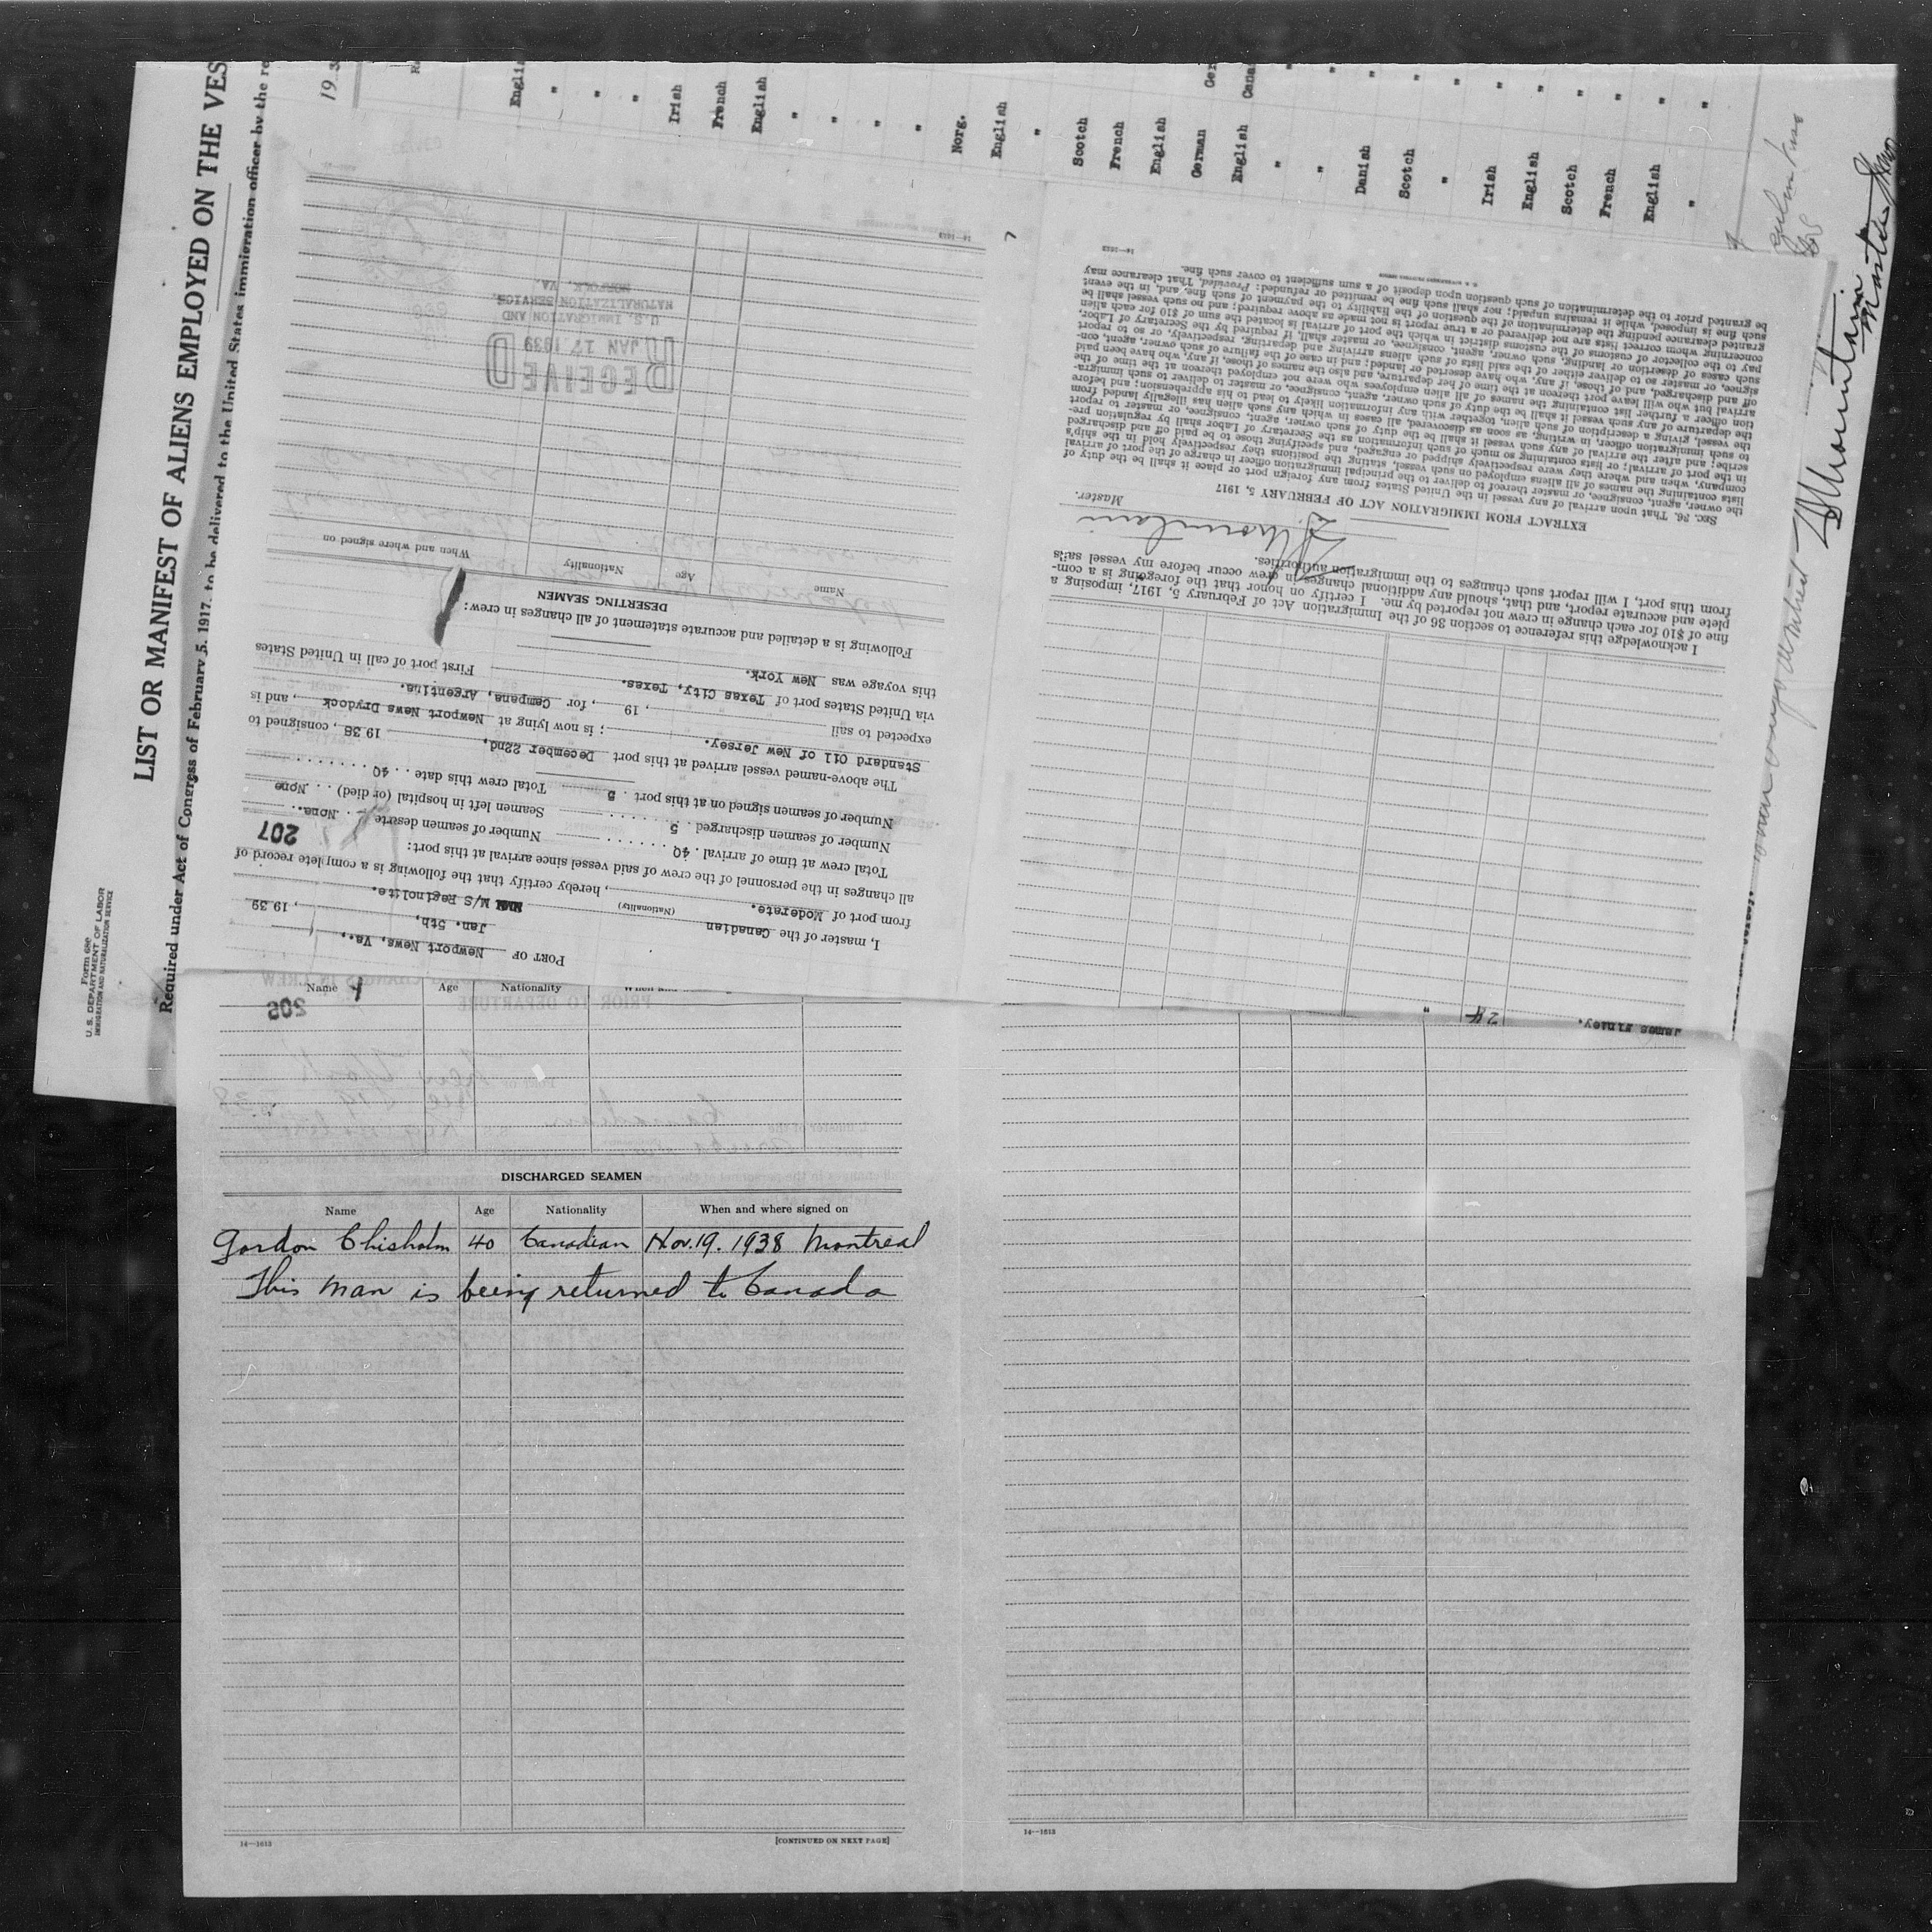 LIST OR MANIFEST OF ALIENS EMPLOYED ON THE VES
Required under Act of Congress of February 5, 1917, to be delivered to the United States immigration officer by the re
Form 680
U.S. DEPARTMENT OF LABOR
IMMIGRATION AND NATURALIZATION SERVICE
19
Englis
"
"
"
Irish
French
English
"
"
"
"
Norg.
English
"
Scotch
French
English
German
English
"
"
Danish
Scotch
"
Irish
English
Scotch
French
English
"
Ger
Cana
"
"
"
"
"
"
"
"
"
"
"
Master
PORT OF Newport News, Va.,
Jan. 5th, , 19 39
I, master of the Canadian M/S Reginolite.
(Nationality)
from port of Moderate. , hereby certify that the following is a complete record of
all changes in the personnel of the crew of said vessel since arrival at this port:
207
Total crew at time of arrival . 40
Number of seamen discharged 5 Number of seamen deserte None.
Number of seamen signed on at this port . 5 Seamen left in hospital (or died) . . None
Total crew this date . . 40
The above-named vessel arrived at this port December 22nd, 19 38, consigned to
Standard Oil of New Jersey. ; is now lying at Newport News Drydock, and is
expected to sail , 19 , for Campana, Argentine.
via United States port of Texas City, Texas. First port of call in United States
this voyage was New York.
Following is a detailed and accurate statement of all changes in crew:
DESERTING SEAMEN
Name Age Nationality When and where signed on
RECEIVED
JAN 17 1939
U.S. IMMIGRATION AND
NATURALIZATION SERVICE
NORFOLK, VA.
14—1613
James Finley. 24 "
I acknowledge this reference to section 36 of the Immigration Act of February 5, 1917, imposing a
fine of $10 for each change in crew not reported by me. I certify on honor that the foregoing is a com-
plete and accurate report, and that, should any additional changes in crew occur before my vessel sails
from this port, I will report such changes to the immigration authorities.
Master.
EXTRACT FROM IMMIGRATION ACT OF FEBRUARY 5, 1917
SEC. 36. That upon arrival of any vessel in the United States from any foreign port or place it shall be the duty of
the owner, agent, consignee, or master thereof to deliver to the principal immigration officer in charge of the port of arrival
lists containing the names of all aliens employed on such vessel, stating the positions they respectively hold in the ship's
company, when and where they were respectively shipped or engaged, and specifying those to be paid off and discharged
in the port of arrival; or lists containing so much of such information as the Secretary of Labor shall by regulation pre-
scribe; and after the arrival of any such vessel it shall be the duty of such owner, agent, consignee, or master to report
to such immigration officer, in writing, as soon as discovered, all cases in which any such alien has illegally landed from
the vessel, giving a description of such alien, together with any information likely to lead to his apprehension; and before
the departure of any such vessel it shall be the duty of such owner, agent, consignee, or master to deliver to such immigra-
tion officer a further list containing the names of all alien employees who were not employed thereon at the time of the
arrival but who will leave port thereon at the time of her departure, and also the names of those, if any, who have been paid
off and discharged, and of those, if any, who have deserted or landed; and in case of the failure of such owner, agent, con-
signee, or master so to deliver either of the said lists of such aliens arriving and departing, respectively, or so to report
such cases of desertion or landing, such owner, agent, consignee, or master shall, if required by the Secretary of Labor,
pay to the collector of customs of the customs district in which the port of arrival is located the sum of $10 for each alien
concerning whom correct lists are not delivered or a true report is not made as above required; and no such vessel shall be
granted clearance pending the determination of the question of the liability to the payment of such fine, and, in the event
such fine is imposed, while it remains unpaid; nor shall such fine be remitted or refunded: Provided, That clearance may
be granted prior to the determination of such question upon deposit of a sum sufficient to cover such fine.
14—1613
Name Age Nationality
205
PRIOR TO DEPARTURE
DISCHARGED SEAMEN
Name Age Nationality When and where signed on
Gordon Chisholm 40 Canadian Nov. 19. 1938 Montreal
This man is being returned to Canada
14—1613 [CONTINUED ON NEXT PAGE]
14—1613